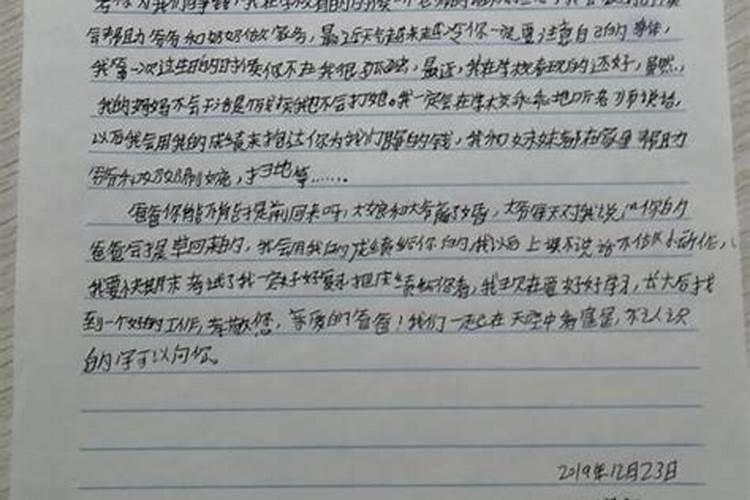 会帮助爷爷和奶奶做家务，最近天气越来越冷你一定要注意自己的身体，
我第一次过生日的时候你不在我很孤独，最近，我在学校表现的还好，虽然，
我的妈妈不会
我一定会在学校乖乖地听老师说话，
以后我会用我的成绩来报达你为我们赚的钱，我和妹妹都在家里帮助
爷爷和奶奶刷婉，扫地等……
爸爸你能不能提前回来呀，大娘和大爷离了婚，大爷每天对我说
爸爸会提早回来的，我会用我的成绩给你的，我以后上课不说话不做小动作，
我要快期末考试了我一定好好复习把成绩给你看，我现在要好好学习，长大后找
到一个好的工作，孝敬您，亲爱的爸爸！我们一起在天空中看星星，不认识
的字可以问你。
2019年12月23日